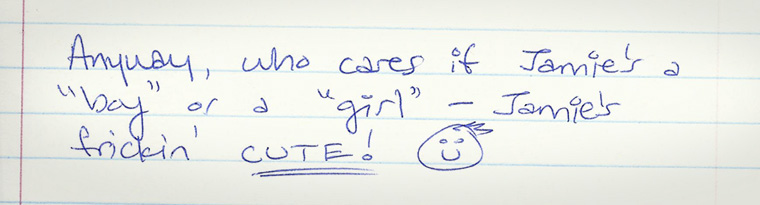 Anyway, who cares if Jamie's a
"boy" or a "girl" – Jamie's
frickin' CUTE!